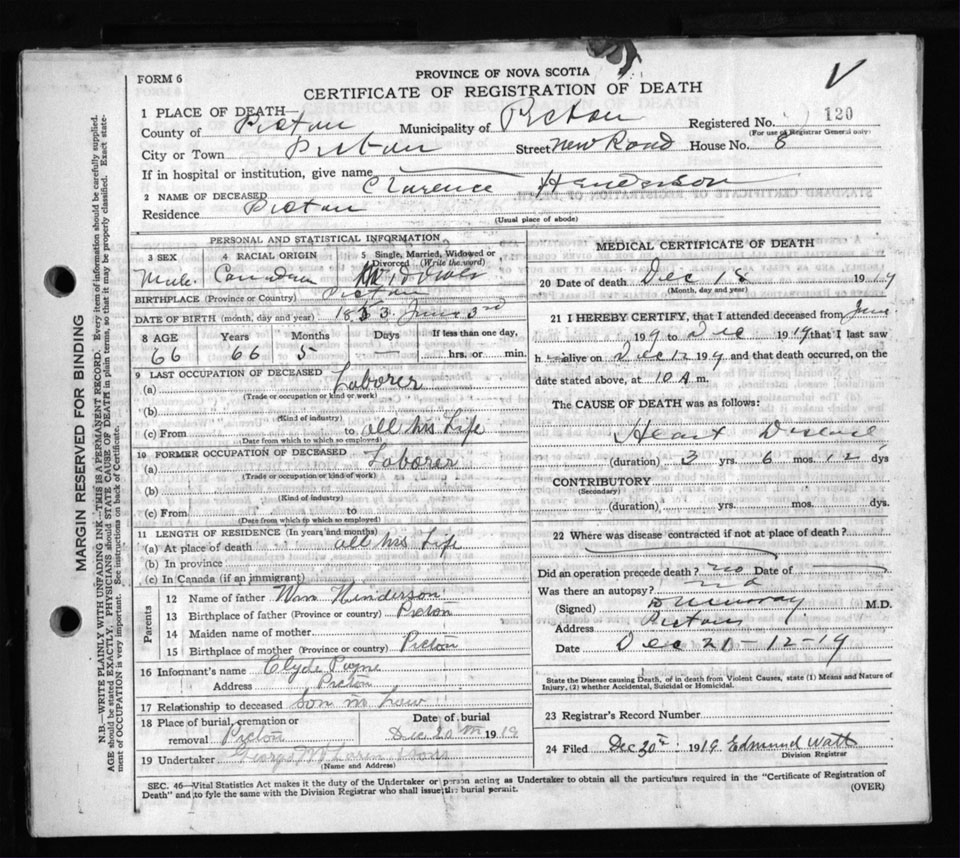 FORM 6
PROVINCE OF NOVA SCOTIA
CERTIFICATE OF REGISTRATION OF DEATH
V
1 PLACE OF DEATH—
County of Picton Municipality of Picton Registered No. 120
(For use of Registrar General only)
City or Town Picton Street New Road House No. 8
If in hospital or institution, give name
2 NAME OF DECEASED Clarence Henderson
Residence Picton
(Usual place of abode)
MARGIN RESERVED FOR BINDING
N.B.—WRITE PLAINLY WITH UNFADING INK—THIS IS A PERMANENT RECORD. Every item of information should be carefully supplied.
AGE should be stated EXACTLY, PHYSICIANS should STATE CAUSE OF DEATH in plain terms, so that it may be properly classified. Exact statement of OCCUPATION is very important. See instructions on back of Certificate.
PERSONAL AND STATISTICAL INFORMATION
3 SEX 4 RACIAL ORIGIN 5 Single, Married, Widowed or Divorced (Write the word)
Widower
BIRTHPLACE (Province or Country) Picton
DATE OF BIRTH (month, day and year) June 3rd
8 AGE Years Months Days If less than one day,
66 66 5 — hrs. or min.
9 LAST OCCUPATION OF DECEASED
(a) Laborer
(Trade or occupation or kind or work)
(b)
(Kind of industry)
(c) From to all his Life
(Date from which to which so employed)
10 FORMER OCCUPATION OF DECEASED
(a) Laborer
(Trade or occupation or kind of work)
(b)
(Kind of industry)
(c) From to
(Date from which to which so employed)
11 LENGTH OF RESIDENCE (In years and months)
(a) At place of death all his Life
(b) In province
(c) In Canada (if an immigrant)
Parents
12 Name of father Wm Henderson
13 Birthplace of father (Province or country) Picton
14 Maiden name of mother
15 Birthplace of mother (Province or country) Picton
16 Informant's name Clyde
Address Picton
17 Relationship to deceased son in Law
18 Place of burial, cremation or removal Picton
Date of burial Dec 20th 1919
19 Undertaker George
(Name and Address)
MEDICAL CERTIFICATE OF DEATH
20 Date of death Dec 18 1919
(Month, day and year)
21 I HEREBY CERTIFY, that I attended deceased from June
19 to Dec 1919 that I last saw
h alive on Dec 19 and that death occurred, on the
date stated above, at 10 A m.
The CAUSE OF DEATH was as follows:
Heart Disease
(duration) 3 yrs. 6 mos. 12 dys
CONTRIBUTORY
(Secondary)
(duration) yrs. mos. dys.
22 Where was disease contracted if not at place of death?
Did an operation precede death? no Date of
Was there an autopsy? no
(Signed) Murray M.D.
Address Picton
Date Dec 20-12-19
State the Disease causing Death, or in death from Violent Causes, state (1) Means and Nature of Injury, (2) whether Accidental, Suicidal or Homicidal.
23 Registrar's Record Number
24 Filed Dec 20th 1919 Edmund Watt
Division Registrar
SEC. 46—Vital Statistics Act makes it the duty of the Undertaker or person acting as Undertaker to obtain all the particulars required in the "Certificate of Registration of
Death" and to fyle the same with the Division Registrar who shall issue the burial permit.
(OVER)